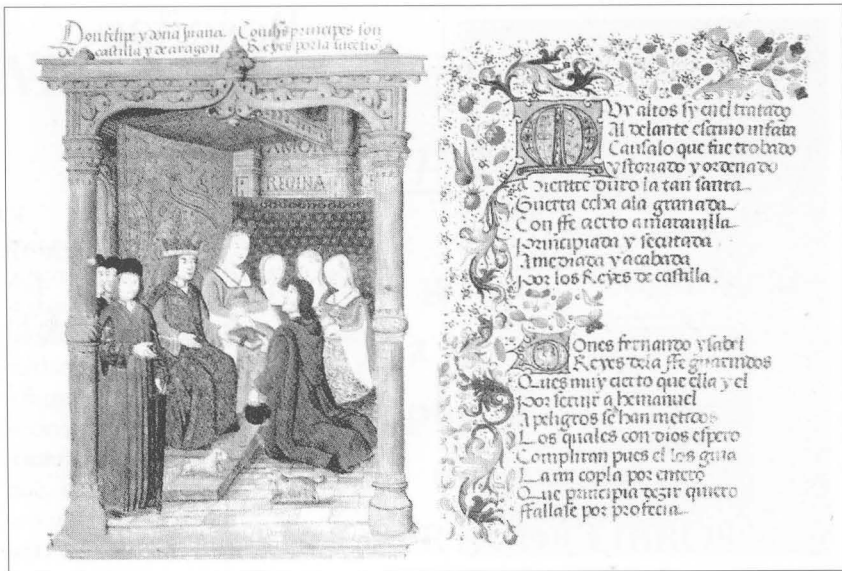 Don felipe y doña Juana. Con hs principes son
de castilla y de aragon Reyes por la sucesio
AMOR
REGINA
Uy altos sy en el tratado
Al delante escriuo infata
Causalo que fue trobado
ystoriado y ordenado
duro la tan santa
Guerra echa ala granada
Con ffe cierto a marauilla
principiada y secutada
Amediada y acabada
por los Reyes de castilla.
Ones fernando ysabel
Reyes dela ffe guarnidos
Ques muy cierto que ella y el
por seruir a hemanuel
A peligros se han metidos
Los quales con dios espero
Compliran pues el los guia
La mi copla por entero
Que principia dezir quiero
ffallase por profecia